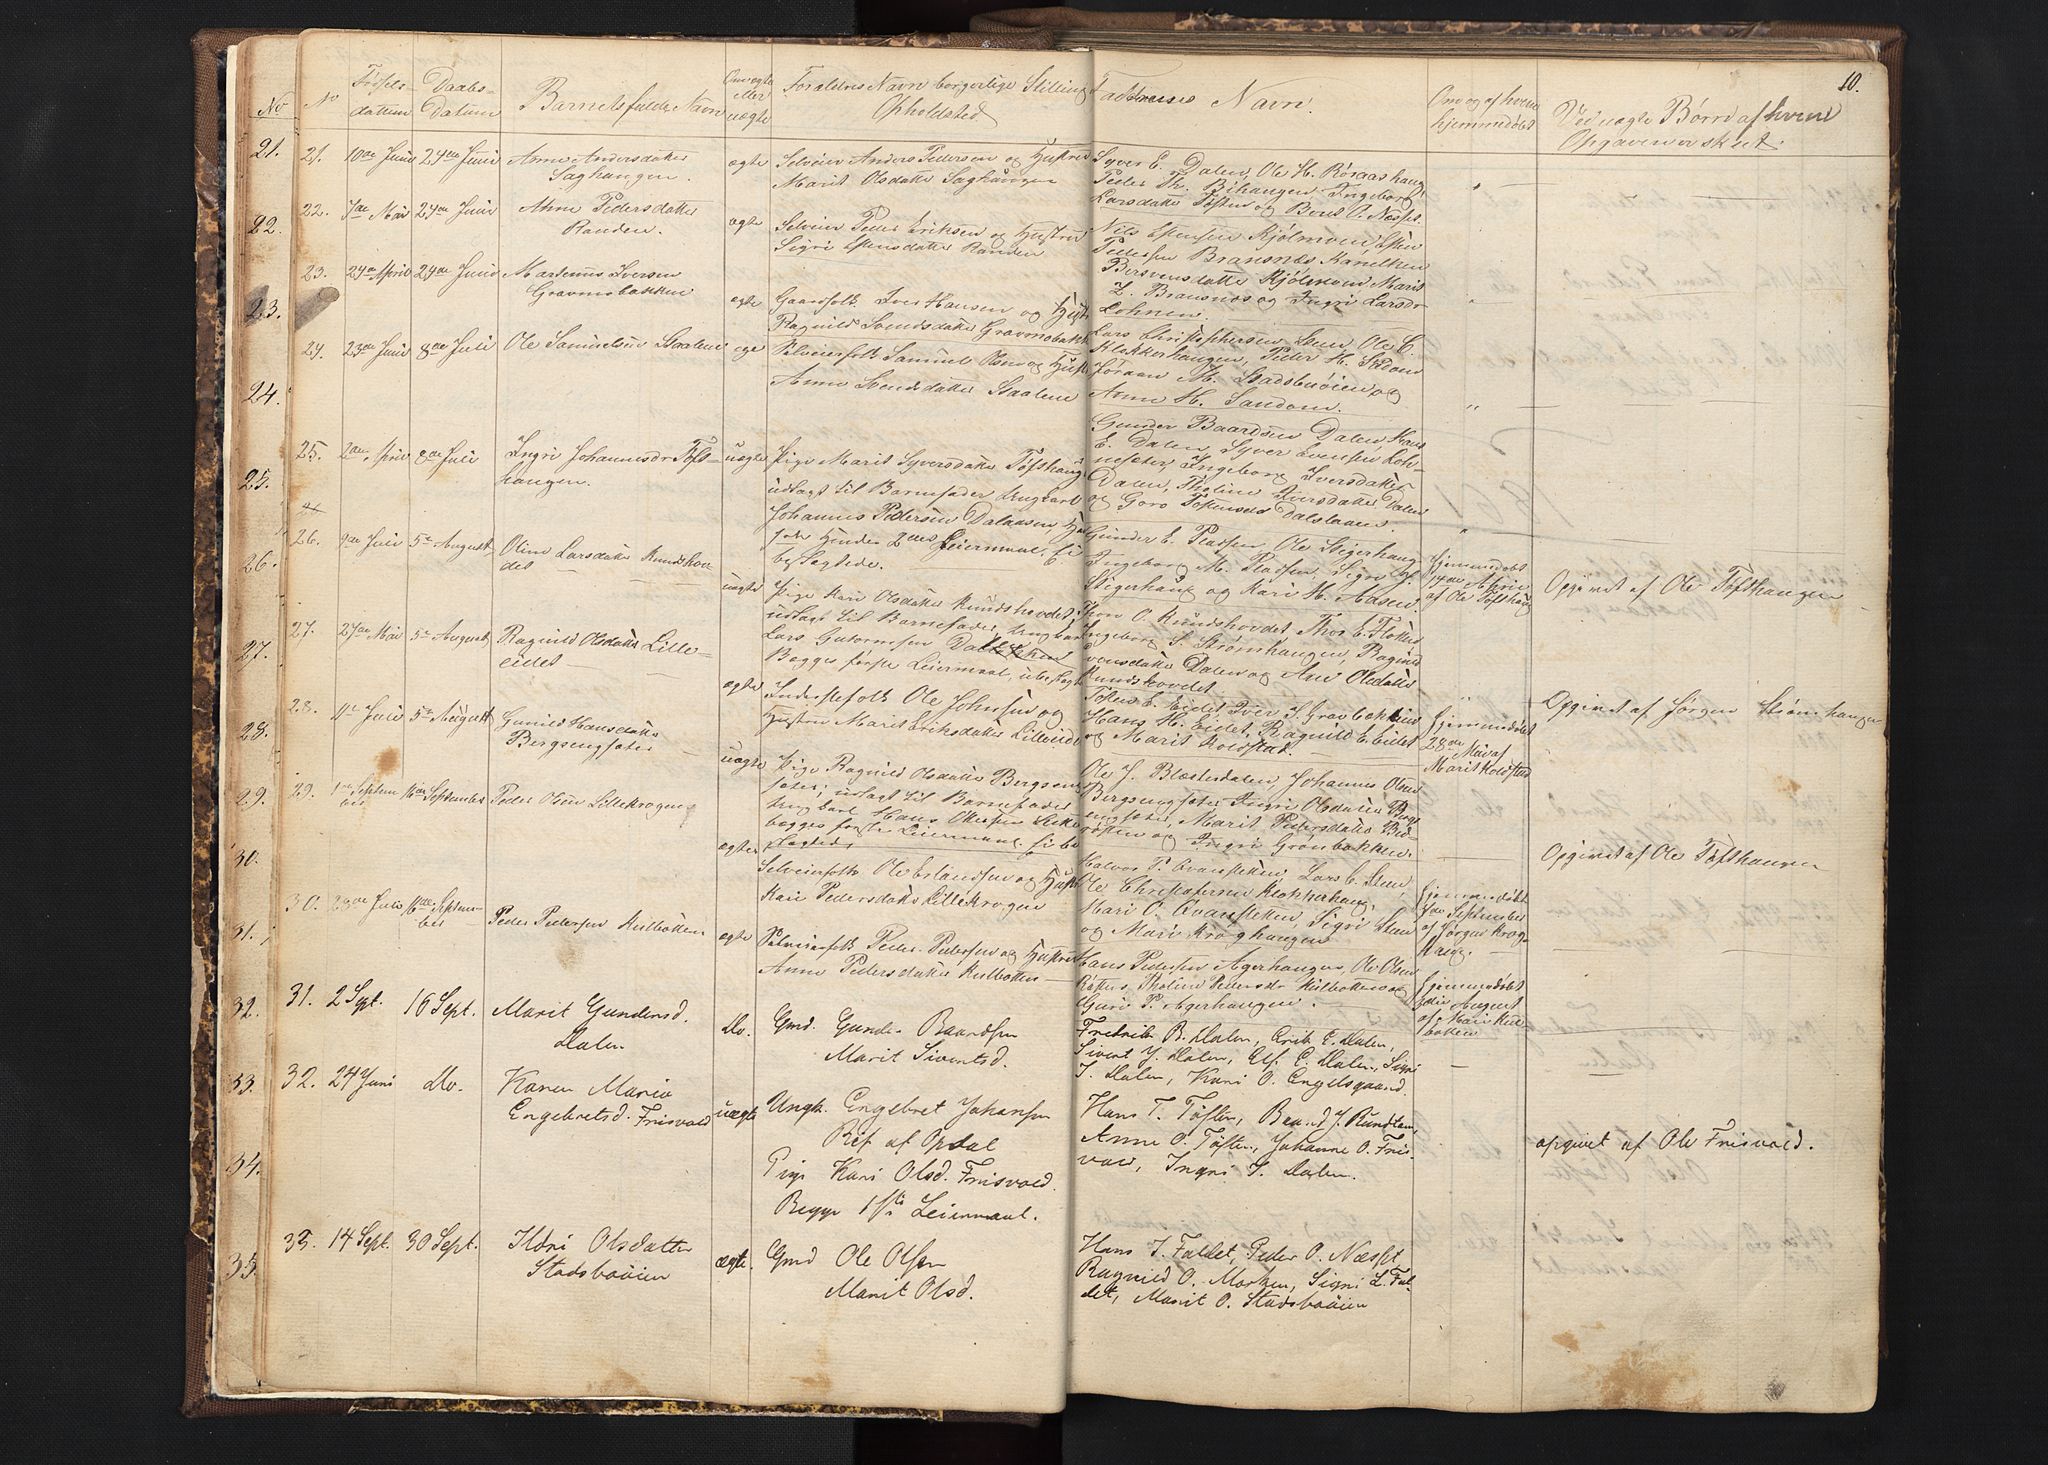 10.
No
No
Fødsels-
datum
Daabs-
Datum
Barnets fulde Navn
Om ægte
eller
uægte
Forældres Navn borgerlige Stilling
Opholdsted
Faddernes Navn.
Om og af hvem
hjemmedøbt
Ved uægte Børn af hvem
Opgaven er skeet.
21.
21.
10de Juni
24de Juni
Anne Andersdatter
Saghaugen.
ægte
Selveier Anders Pedersen og Hustru
Marit Olsdatter Saghaugen
Syver E. Dalen, Ole H. Røraashaug
Peder Th. Bihaugen Ingeborg
Larsdatter Tøften og Beret O. Næsset.
22.
22.
7de Mai
24de Juni
Anne Pedersdatter
Randen.
ægte
Selveier Peder Eriksen og Hustru
Sigri Espensdatter Randen
Nils Espensen Kjølmoen Espen
Pedersen Bransnæs
Bersvensdatter Kjølmoen Marit
Bransnæs og Ingri Larsdr
Lohnen.
23.
23.
24de April
24de Juni
Martenus Iversen
Gravmobakken
ægte
Gaardfolk Iver Hansen og Hustr
Ragnild Svendsdatter Gravmobakk
Lars Christophersen Stuen, Ole C.
Klokkerhaugen, Peder H.
Jøraan M. Stadsbuøien og
Anne H. Sandom.
24.
24.
23de Juni
8de Juli
Ole Samuelsen Staalene
ægte
Selveierfolk Samuel Olsen og Hustr
Anne Svendsdatter Staalene
Gunder Baardsen Dalen, Hans
E. Dalen, Syver Evensen Loh-
nesæter, Ingeborg Iversdatter
Dalen, Tholine Iversdatter Dalen
og Goro Dalslaaen.
25.
25.
2den April
8de Juli
Ingri Johannesdr Tøft-
haugen.
uægte
Pige Marit Syversdatter Tøfthaug
udlagt til Barnefader Ungkarl
Johannes Pedersen Dalaasen,
hendes 2det Leiermaal. Ei
beslægtede.
Gunder E. Pladsen, Ole Stigerhaug
Ingeborg M. Pladsen, Sigri H.
Stigerhaug og Kari H. Aasen.
Hjemmedøbt
17de April
af Ole Tøfthaug
Opgivet af Ole Tøfthaugen
26
26.
26.
9de Juli
5te August
Oline Larsdatter Rundshov
det
uægte
Pige Kari Olsdatter Rundshovdet,
udlagt til Barnefader Ungkarl
Lars Gutormsen
Begges første Leiermaal, ubeslægt
Thor O. Rundshovdet Thor E. Flottens
Ingeborg S. Strømhaugen, Ragnild
Svensdatter Dalen og Ane Olsdatter
Rundshovdet.
Opgivet af Jørgen Strømhaugen
27.
27.
27de Mai
5te August
Ragnild Olsdatter Lille-
eidet
ægte
Inderstefolk Ole Johnsen og
Hustru Marit Eriksdatter Lilleeidet
Tosten E. Eidet, Iver J. Gravbakken
Hans H. Eidet, Ragnild E. Eidet
og Marit Koldstad.
Hjemmedøbt
28de Mai af
Marit Koldstad
28.
28.
4de Juli
5te August
Gunild Hansdatter
Bergsengsæter
uægte
Pige Ragnild Olsdatter Bergseng
sæter; udlagt til Barnefader
Ungkarl Hans Olsen
begges første Leiermaal. Ei be
slægtede,
Ole J. Blæsterdalen, Johannes Olsen
Bergsengsæter, Ingri Olsdatter Bergs
engsæter, Marit Pedersdatter
og Ingri Grønbakken.
Opgivet af Ole Tøfthaugen
29.
29.
1ste Septem
ber
16de September
Peder Olsen Lillekrogen
ægte
Selveierfolk Ole Erlandsen og Hustr
Kari Pedersdatter Lillekrogen
Halvor P. Qvansteken, Lars C. Stuen,
Ole Christofersen Klokkerhaug,
Mari O. Qvansteken, Sigri Stuen
og Mari Kroghaugen
Hjemmedøbt
7de September
af Jørgen Krog-
haug.
30.
30.
23de Juli
16de Septem-
ber
Peder Pedersen Kulbotten
ægte
Selveierfolk Peder Pedersen og Hustru
Anne Pedersdatter Kulbotten
Hans Pedersen Agerhaugen, Ole Olsen
Røtten, Tholine Pedersdr Kulbotten og
Guri P. Agerhaugen.
Hjemmedøbt
August
af Mari Kul
botten
31.
32.
31.
2 Sept.
16 Sept.
Marit Gundersd.
Dalen
Do.
Gmd. Gunder Baardsen
Marit Sivertsd.
Fredrik B. Dalen, Erik E. Dalen,
Sivert J. Dalen, Elf. E. Dalen, Sigri
J. Dalen, Kari O. Engelsgaard.
33.
32.
24 Juni
Do.
Karen Maria
Engebretsd. Frisvold
uægte
Ungk. Engebret Johansen
Rif af Opdal
Pige Kari Olsd. Frisvold.
Begges 1ste Leiermaal.
Hans T. Tøften, Baard J. Rundtom,
Anne O. Tøften, Johanne O. Fris-
vold, Ingri S. Dalen.
opgivet af Ole Frisvold.
34.
35.
33.
14 Sept.
30 Sept.
Ildri Olsdatter
Stadsbuøien
ægte.
Gmd Ole Olsen
Marit Olsd.
Hans J. Faldet, Peder O. Næsset,
Ragnild O. Morken, Sigri L. Fal-
det, Marit O. Stadsbuøien